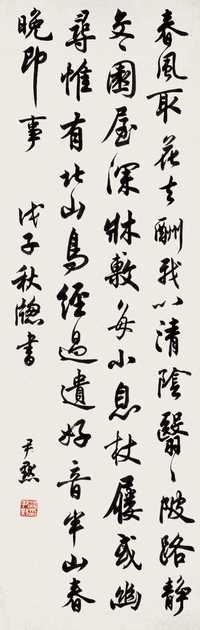 春風取花去酬我以清陰翳々陂路靜
交々園屋深牀敷每小息杖屨或幽
尋惟有北山鳥經過遺好音半山春
晚即事　戊子秋窗書　尹默